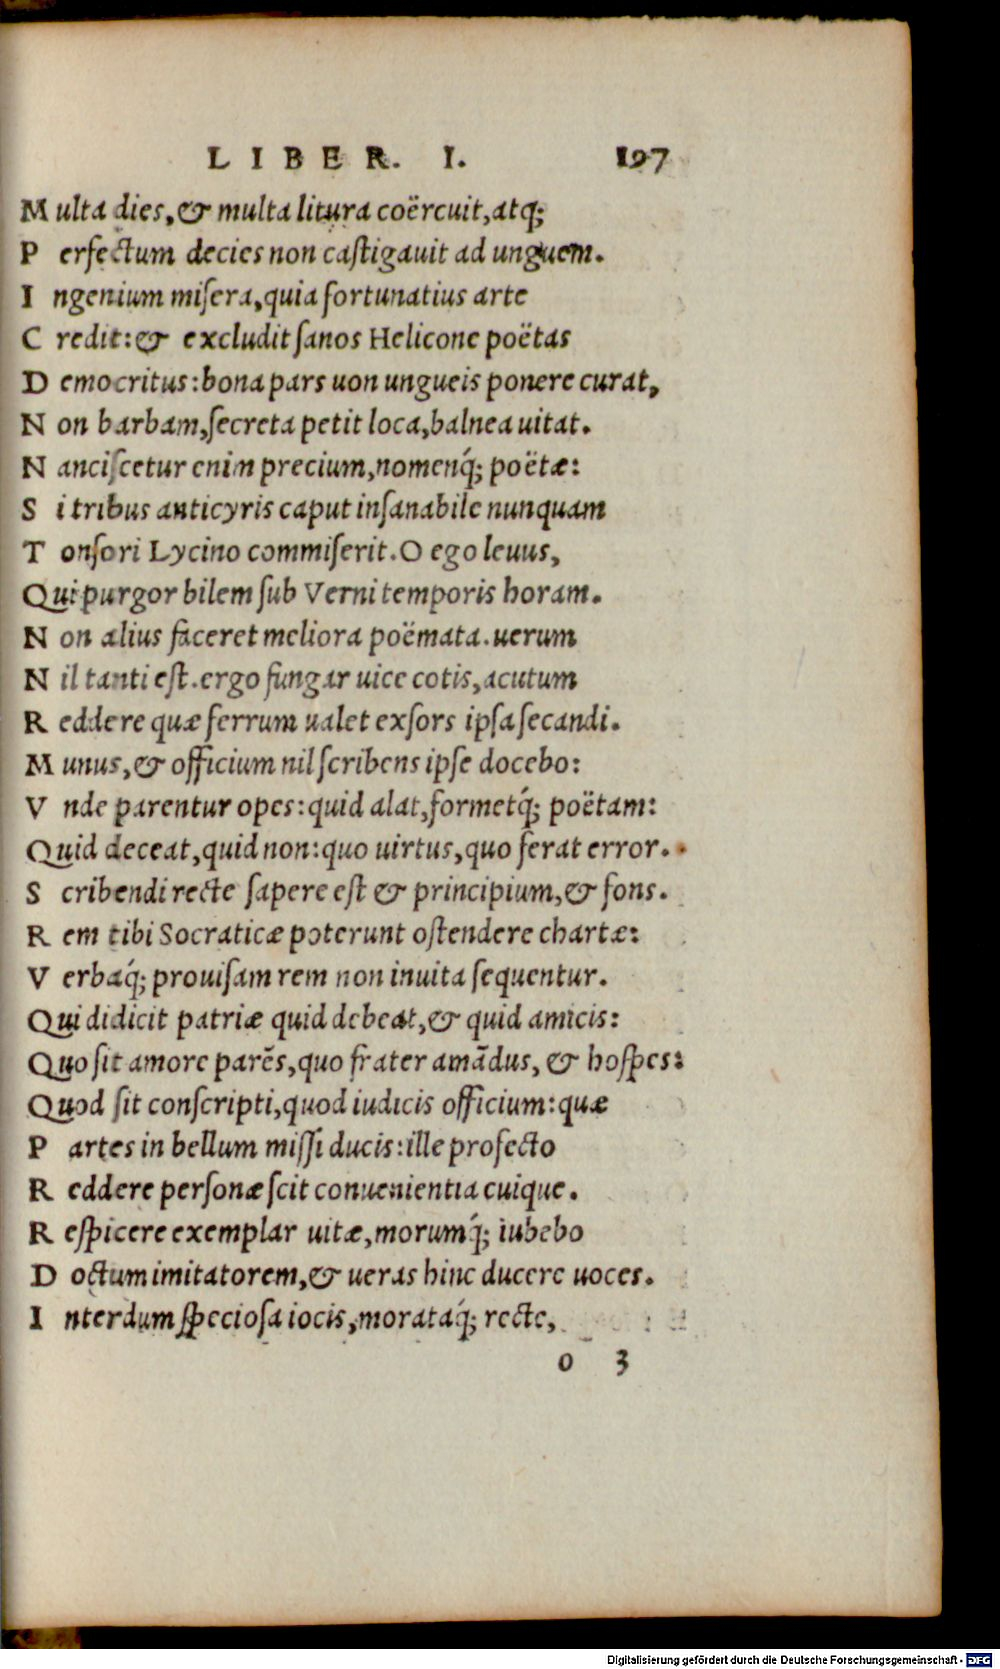 LIBER. I. 197
Multa dies, & multa litura coërcuit, atq́;
Perfectum decies non castigauit ad unguem.
Ingenium misera, quia fortunatius arte
Credit: & excludit sanos Helicone poëtas
Democritus: bona pars uon ungueis ponere curat,
Non barbam, secreta petit loca, balnea uitat.
Nanciscetur enim precium, nomenq́; poëtæ:
Si tribus anticyris caput insanabile nunquam
Tonsori Lycino commiserit. O ego leuus,
Qui purgor bilem sub Verni temporis horam.
Non alius faceret meliora poëmata. uerum
Nil tanti est. ergo fungar uice cotis, acutum
Reddere quæ ferrum ualet exsors ipsa secandi.
Munus, & officium nil scribens ipse docebo:
Vnde parentur opes: quid alat, formetq́; poëtam:
Quid deceat, quid non: quo uirtus, quo ferat error.
Scribendi recte sapere est & principium, & fons.
Rem tibi Socraticæ poterunt ostendere chartæ:
Verbaq́; prouisam rem non inuita sequentur.
Qui didicit patriæ quid debeat, & quid amicis:
Quo sit amore parẽs, quo frater amãdus, & hospes:
Quod sit conscripti, quod iudicis officium: quæ
Partes in bellum missi ducis: ille profecto
Reddere personæ scit conuenientia cuique.
Respicere exemplar uitæ, morumq́; iubebo
Doctum imitatorem, & ueras hinc ducere uoces.
Interdum speciosa iocis, morataq́; recte,
o 3
Digitalisierung gefördert durch die Deutsche Forschungsgemeinschaft - DFG